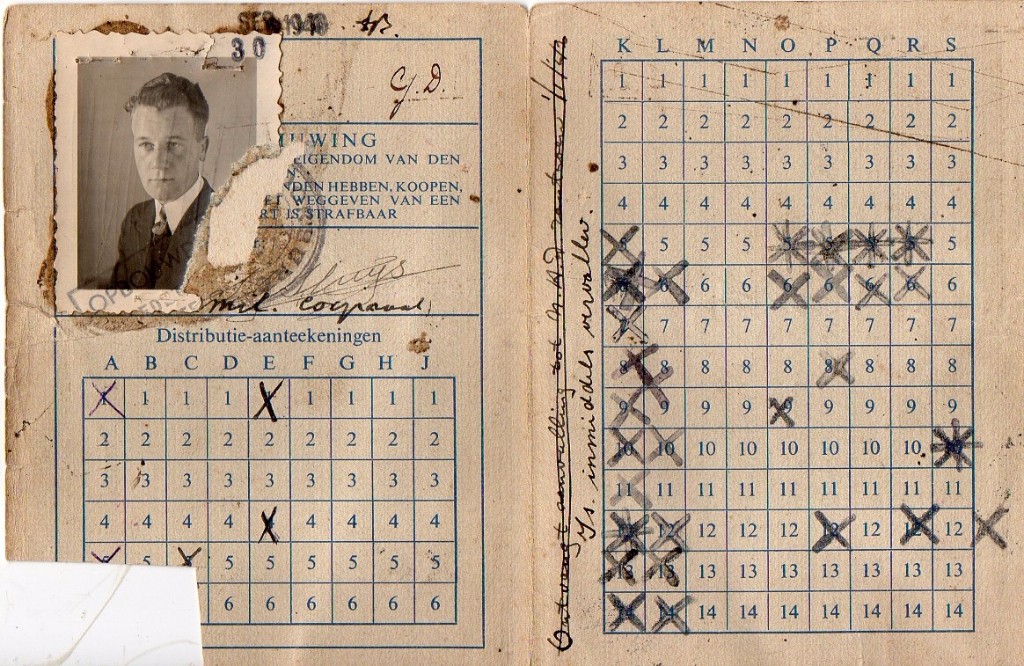 SEP 1940
30
WING
EIGENDOM VAN DEN
N.
NDEN HEBBEN, KOOPEN,
WEGGEVEN VAN EEN
RT IS STRAFBAAR
OPBOUW
Mil.
Distributie-aanteekeningen
A B C D E F G H J
1 1 1 1 1 1 1 1 1
2 2 2 2 2 2 2 2 2
3 3 3 3 3 3 3 3 3
4 4 4 4 4 4 4 4 4
5 5 5 5 5 5 5 5 5
6 6 6 6 6 6
Ontvangt aanvulling tot
Is inmiddels vervallen.
K L M N O P Q R S
1 1 1 1 1 1 1 1 1
2 2 2 2 2 2 2 2 2
3 3 3 3 3 3 3 3 3
4 4 4 4 4 4 4 4 4
5 5 5 5 5 5 5 5 5
6 6 6 6 6 6 6 6 6
7 7 7 7 7 7 7 7 7
8 8 8 8 8 8 8 8 8
9 9 9 9 9 9 9 9 9
10 10 10 10 10 10 10 10 10
11 11 11 11 11 11 11 11 11
12 12 12 12 12 12 12 12 12
13 13 13 13 13 13 13 13 13
14 14 14 14 14 14 14 14 14